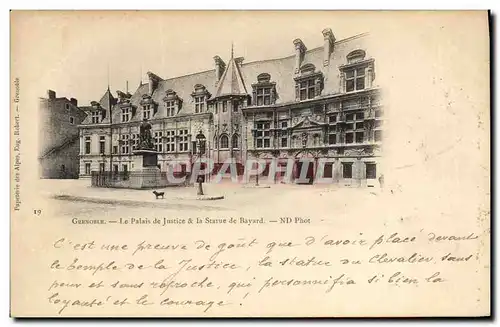 Papeterie des Alpes, Eug. Robert. — Grenoble
CPARAMA.COM
19
GRENOBLE. — Le Palais de Justice & la Statue de Bayard. — ND Phot
C'est une preuve de goût que d'avoir placé devant
le temple de la Justice, la statue du Chevalier sans
peur et sans reproche, qui personnifia si bien, la
loyauté et le courage!